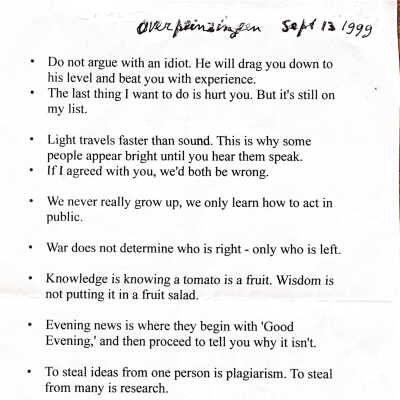 overpeinzingen Sept 13 1999
• Do not argue with an idiot. He will drag you down to
his level and beat you with experience.
• The last thing I want to do is hurt you. But it's still on
my list.
• Light travels faster than sound. This is why some
people appear bright until you hear them speak.
• If I agreed with you, we'd both be wrong.
• We never really grow up, we only learn how to act in
public.
• War does not determine who is right - only who is left.
• Knowledge is knowing a tomato is a fruit. Wisdom is
not putting it in a fruit salad.
• Evening news is where they begin with 'Good
Evening,' and then proceed to tell you why it isn't.
• To steal ideas from one person is plagiarism. To steal
from many is research.